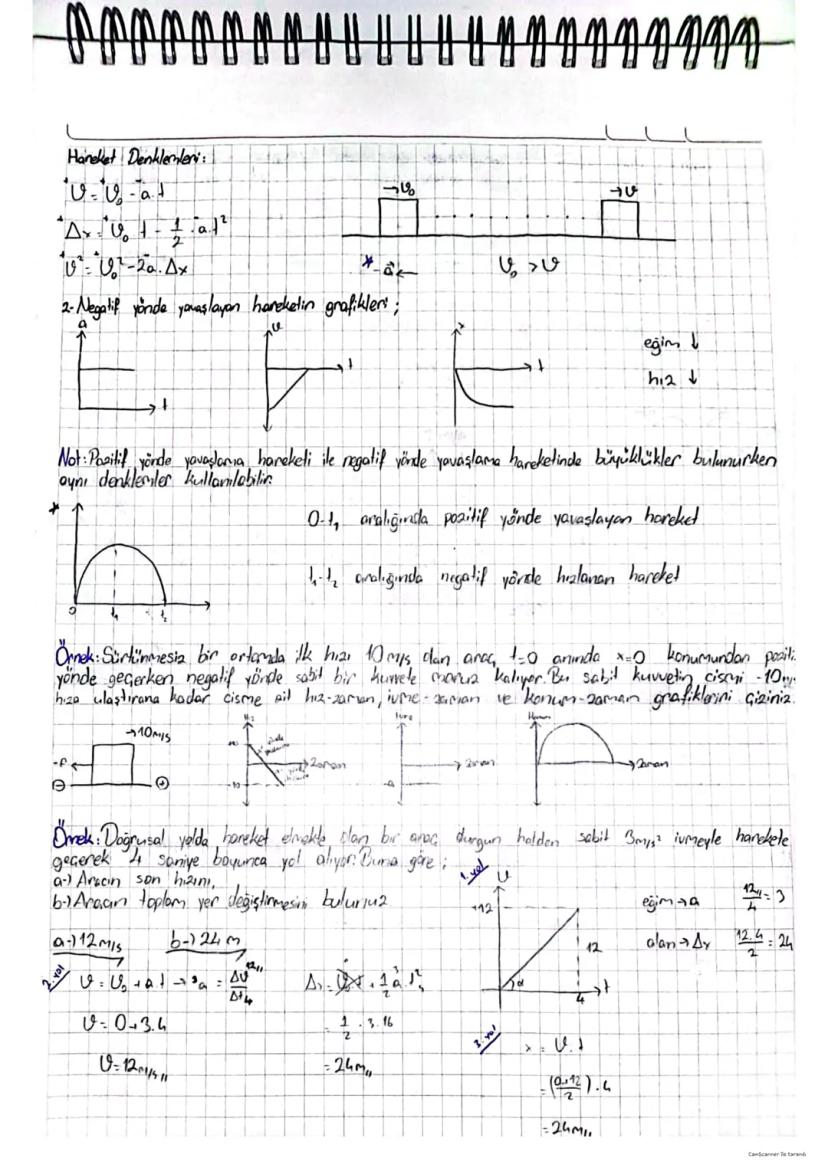 Hareket Denklemleri:
⁺V = ⁺V₀ - ⁻a.t
→V₀ →V
⁺Δx = ⁺V₀ t - 1/2 ⁻a.t²
⁺V² = ⁺V₀² - 2⁻a.Δx
* -a← V₀ > V
2- Negatif yönde yavaşlayan hareketin grafikleri;
a V x
eğim ↓
t t t
hız ↓
Not: Pozitif yönde yavaşlama hareketi ile negatif yönde yavaşlama hareketinde büyüklükler bulunurken
aynı denklemler kullanılabilir.
x
0-t₁ aralığında pozitif yönde yavaşlayan hareket
t₁-t₂ aralığında negatif yönde hızlanan hareket
0 t₁ t₂
Örnek: Sürtünmesiz bir ortamda ilk hızı 10 m/s olan araç, t=0 anında x=0 konumundan poziti
yönde geçerken negatif yönde sabit bir kuvvete maruz kalıyor. Bu sabit kuvvetin cismi -10 m/
hıza ulaştırana kadar cisme ait hız-zaman, ivme-zaman ve konum-zaman grafiklerini çiziniz.
Hız İvme Konum
→10 m/s
-F← Zaman Zaman Zaman
⊖ ⊕ -10 -a
Örnek: Doğrusal yolda hareket etmekte olan bir araç durgun halden sabit 3m/s² ivmeyle harekete
geçerek 4 saniye boyunca yol alıyor. Buna göre;
a-) Aracın son hızını,
b-) Aracın toplam yer değiştirmesini bulunuz
1. yol
V
+12
eğim → a 12/4 = 3
a-) 12 m/s b-) 24 m
12
alan → Δx 12.4/2 = 24
α 4 t
2. yol
V = V₀ + a.t → ³a = ΔV ¹²/Δt 4
Δx = V₀t + 1/2 ³a.t²₄
V = 0 + 3.4
= 1/2 . 3.16
V = 12 m/s
= 24 m
3. yol
x = V.t
= (0+12/2).4
= 24 m
CamScanner ile tarandı